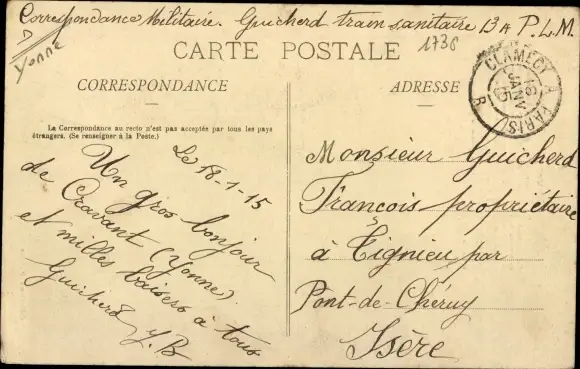 Correspondance Militaire. Guicherd train sanitaire 13A P.L.M.
Yonne
1736
CARTE POSTALE
CORRESPONDANCE
ADRESSE
La Correspondance au recto n'est pas acceptée par tous les pays
étrangers. (Se renseigner à la Poste.)
CLAMECY A PARIS
18
JANV
15
Le 18-1-15
Un gros bonjour
de Cravant (Yonne)
et milles baisers à tous
Guicherd J.B
Monsieur Guicherd
François propriétaire
à Tignieu par
Pont-de-Chéruy
Isère